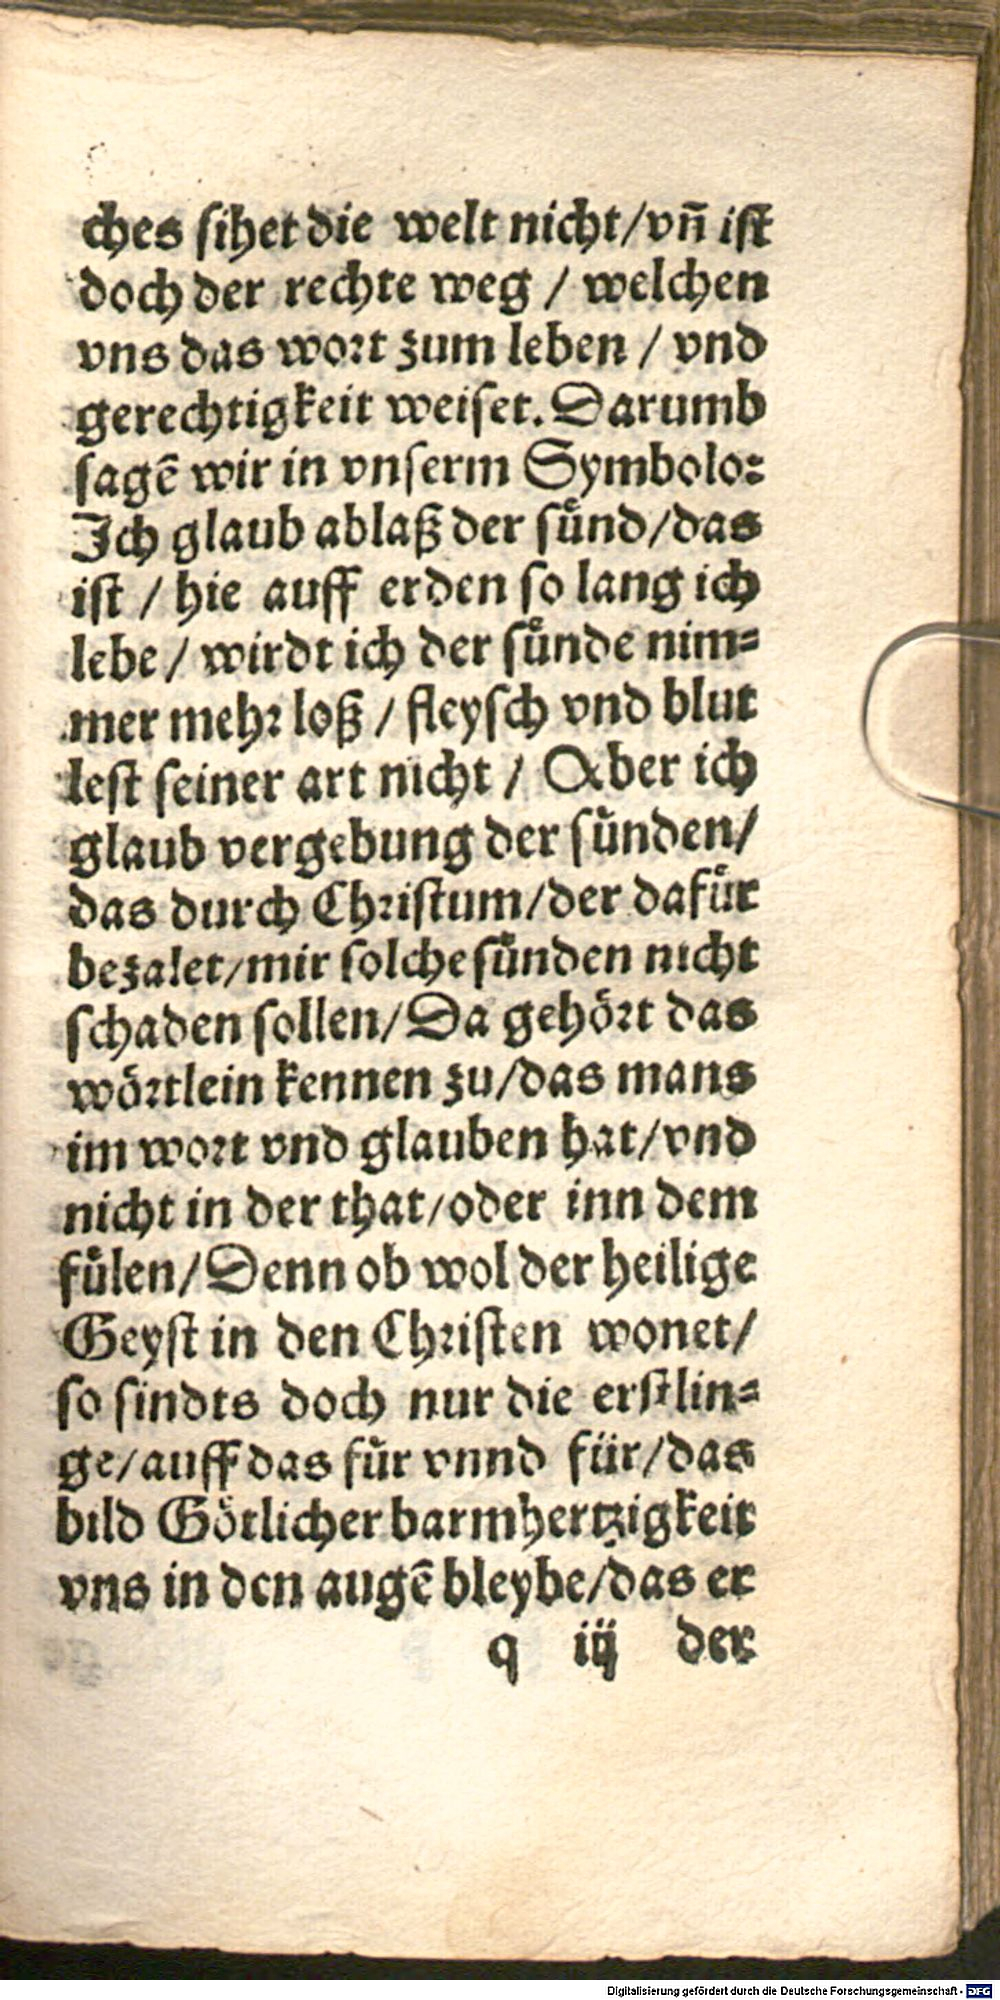 ches sihet die welt nicht/vn̄ ist
doch der rechte weg / welchen
vns das wort zum leben / vnd
gerechtigkeit weiset. Darumb
sagē wir in vnserm Symbolo:
Ich glaub ablaß der sünd/das
ist / hie auff erden so lang ich
lebe / wirdt ich der sünde nim⸗
mer mehr loß / fleysch vnd blut
lest seiner art nicht / Aber ich
glaub vergebung der sünden/
das durch Christum/der dafür
bezalet/mir solche sünden nicht
schaden sollen/Da gehört das
wörtlein kennen zu/das mans
im wort vnd glauben hat/vnd
nicht in der that/oder inn dem
fülen/Denn ob wol der heilige
Geyst in den Christen wonet/
so sindts doch nur die erstlin⸗
ge/auff das für vnnd für/das
bild Götlicher barmhertzigkeit
vns in den augē bleybe/das er
q iij der
Digitalisierung gefördert durch die Deutsche Forschungsgemeinschaft - DFG